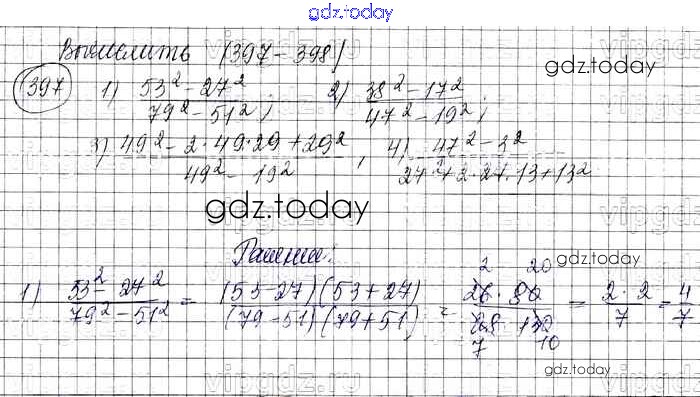 gdz.today
Вычислить (397-398)
gdz.today
397 1) 53² - 27² / 79² - 51² ; 2) 38² - 17² / 47² - 19² ;
3) 49² - 2·49·29 + 29² / 49² - 19² , 4) 47² - 3² / 27² + 2·27·13 + 13²
gdz.today
Решение:
gdz.today
2 20
1) 53² - 27² / 79² - 51² = (53-27)(53+27) / (79-51)(79+51) = 26·80 / 28·130 = 2·2 / 7 = 4 / 7
7 10
gdz.today
vipgdz.ru